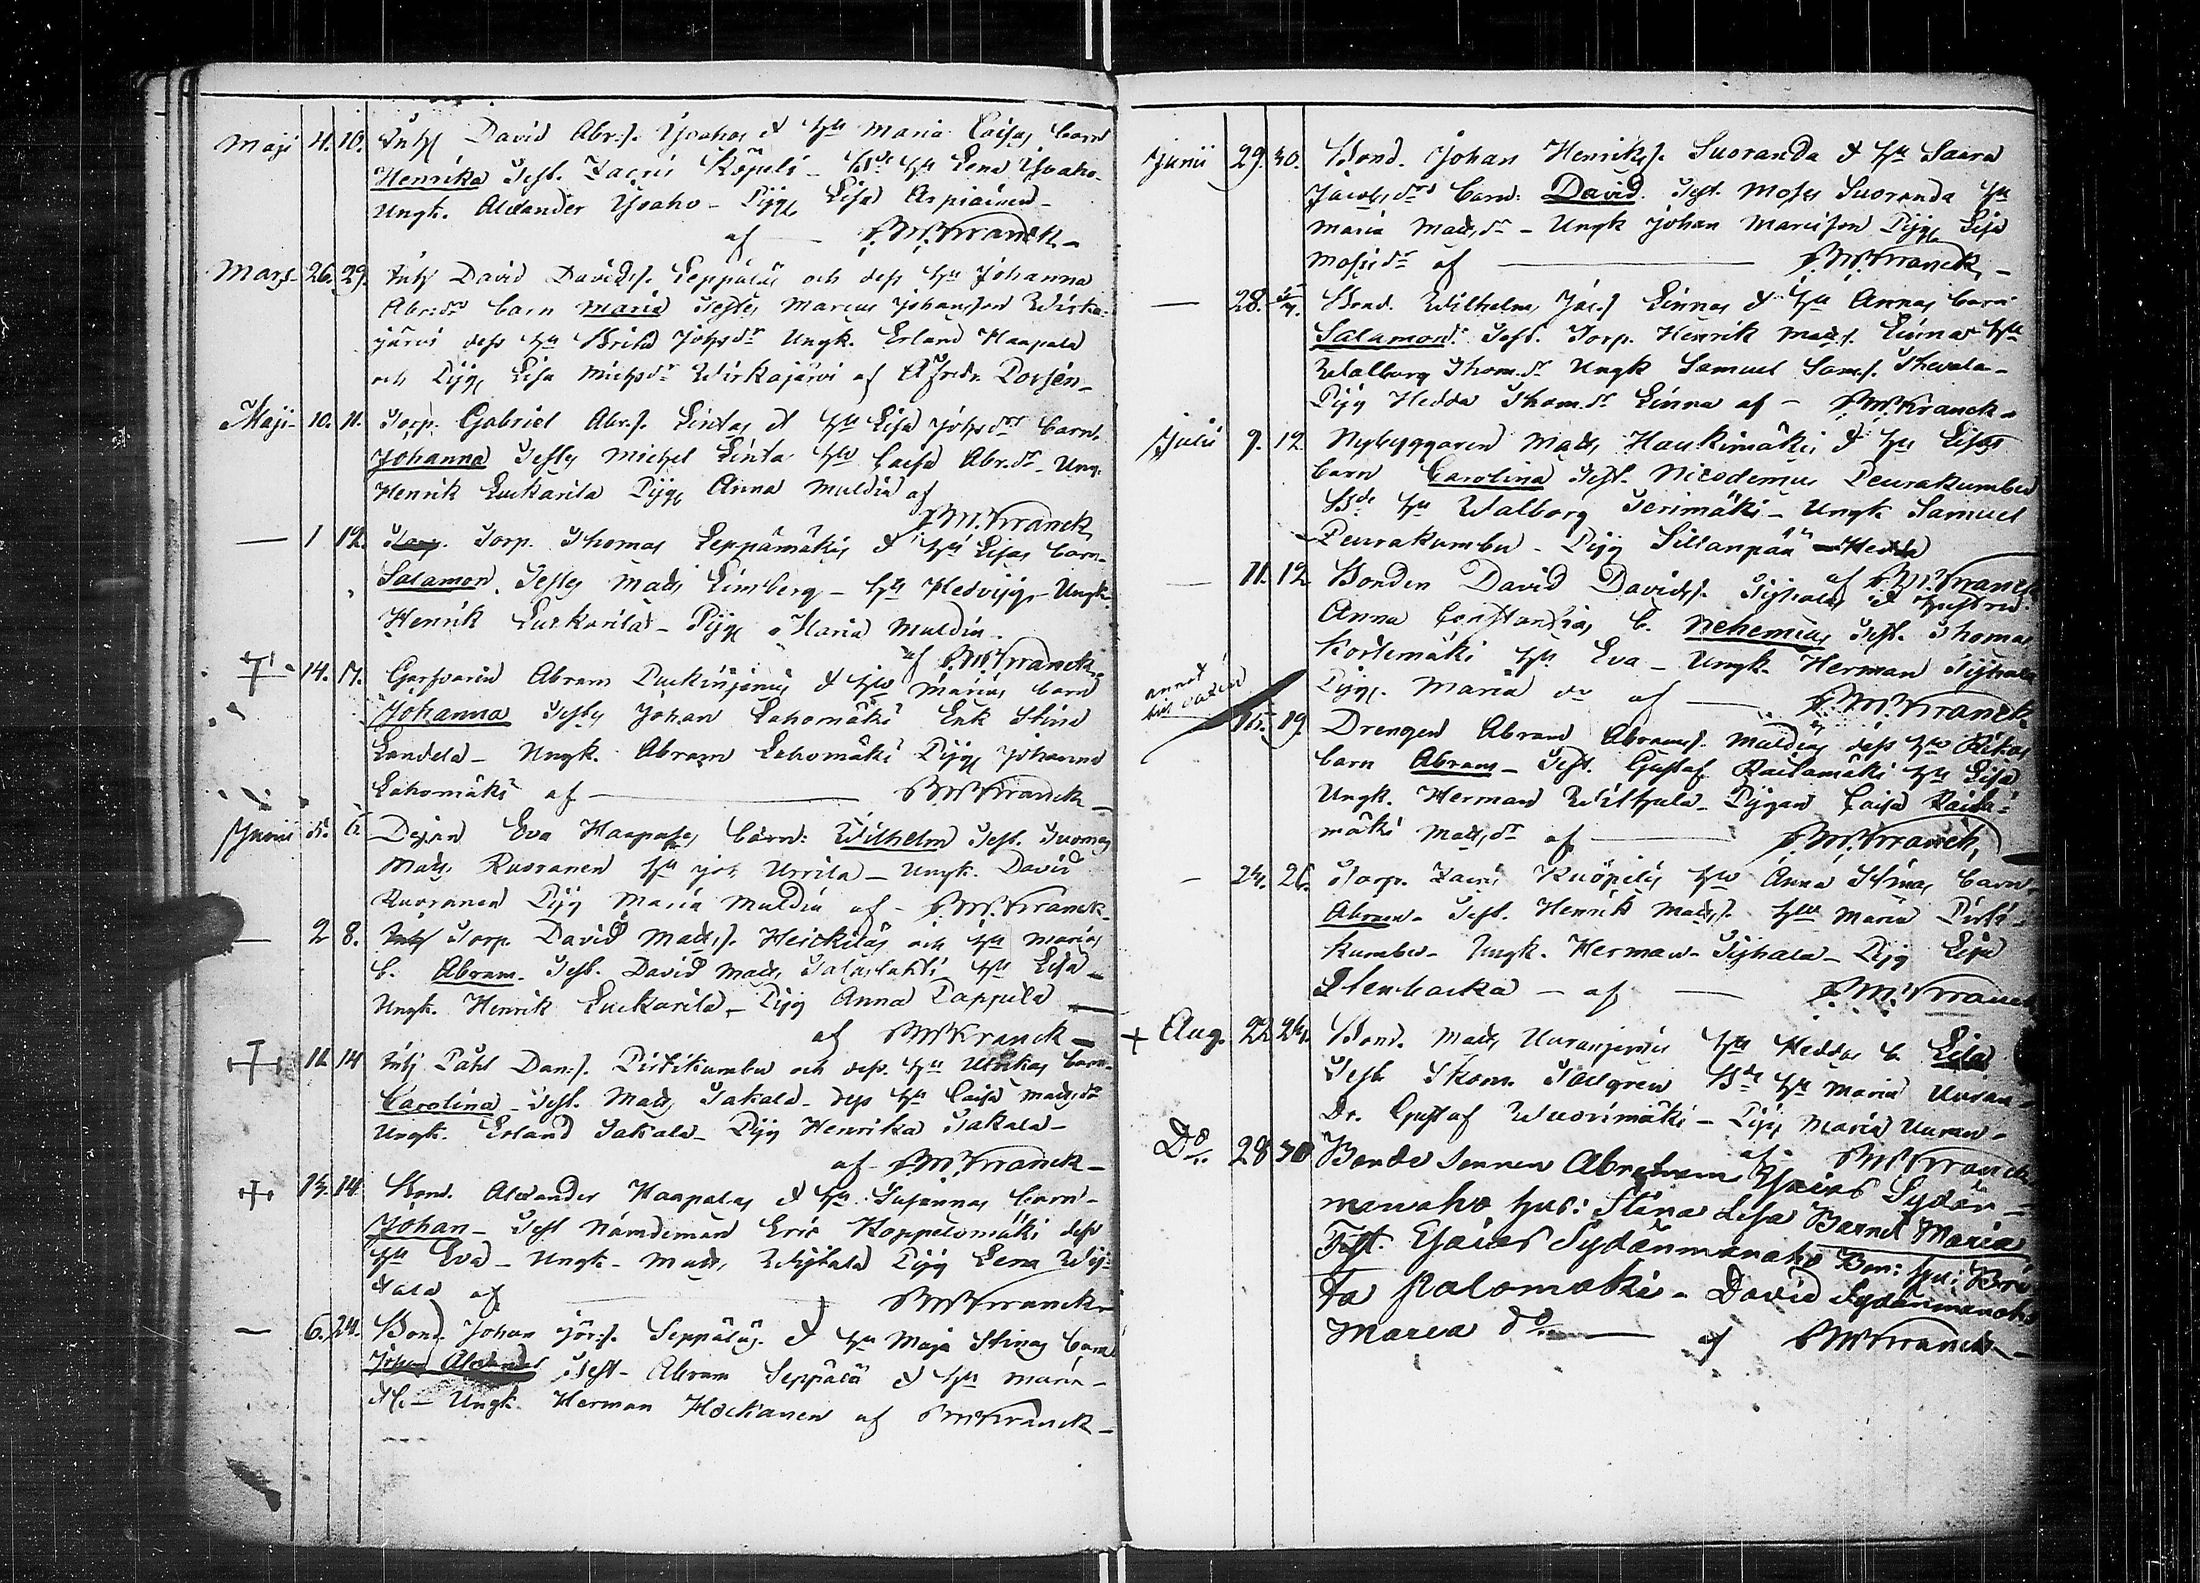 Maji 4. 10. Inh. David Abr:s. Ysahos & hu Maria Caisas barn
Henrika Test. Zacris Köpeli - Bde hu Lena Ysaho-
Ungk. Alexander Ysaho - Pijg. Lisa Arpiainen -
af - P.M. Kranck -
Mars 26. 29. Inh David Davids. Leppäläs och dess hu Johanna
Abr:dr barn Maria Testes Marcus Johansson Wirka-
järvi dess hu Brita Johsdr Ungk. Erland Haapala
och Pijg. Lisa Michsdr Wirkajärvi af A Fredr. Dorsén -
Maji 10. 11. Torp. Gabriel Abr.s. Lintas & hu Lisa Johsdrs barn
Johanna Testes Michel Linta hu Caisa Abr.dr - Ung.
Henrik Luckarila Pijg. Anna Muldia af
P.M. Kranck
— 1 12. Torp. Thomas Leppämäkis & hu Lisas barn
Salamon. Testes Mats Limberg - hu Hedvijg - Ungk.
Henrik Luckarila - Pijg. Maria Muldia -
af P.M. Kranck
14. 17. Abram & hu Marias barn
Johanna Testes Johan Lahomäki Enk Stina
Landela - Ungk. Abram Lahomäki Pijg. Johanna
Lahomäki af — P.M. Kranck -
Junii 5. 6. Pijan Eva Haapalas barn: Wilhelm Test.
Mats Ruoranen hu Urrila - Ungk. David
Ruoranen Pijg Maria Muldia af - P.M. Kranck -
— 2 8. Torp. David Mats.s. Heickiläs och hu Marias
b. Abram. Test. David Mats hu Lisa -
Ungk. Henrik Luckarila - Pijg Anna Pappila —
af P.M. Kranck -
11. 14 Inh Påhl Dan:s. Pirtikumbu och dess hu Ulrikas barn
Carolina - Test. Mats Jakala - dess hu Caisa Mats.dr
Ungk. Erland Jakala - Pijg Henrika Jakala -
af - P.M. Kranck -
13. 14 Bond. Alexander Haapalas & hu Susannas barn -
Johan - Test Nämdeman Eric Koppelomäki dess
hu Eva - Ungk - Mats Pijg Lena
af — P.M. Kranck -
— 6. 24. Bond. Johan Jör:s. Seppäläs & hu Maja Stinas barn
Johan Alexander Test - Abram Seppälä & hu Maria -
Ungk. Herman Hockanen af P.M. Kranck -
Junii 29. 30. Bond. Johan Henriks.s. Suoranda & hu Saara
Jacobsdrs barn: David. Test. Moses Suoranda hu
Maria Mats.dr - Ungk Johan Pijg. Lisa
Mosisdr af — P.M. Kranck -
— 28. Bond. Wilhelm Jac.s Linnas & hu Annas barn
Salamon: Test. Torp. Henrik Mats.s. Linna hu
Walborg Thom.dr Ungk Samuel Sam.s.
Pijg Hedda Thom.dr Linna af - P.M. Kranck -
Julii 9. 12 Nybyggaren Mats Haukimäkis & hu Lisas
barn Carolina Test. Nicodemus Peurakumbu
Bde hu Walborg Terimäki - Ungk Samuel
Peurakumbu - Pijg Sillanpää Hedda
af P.M. Kranck
— 11. 12 Bonden David Davids.s. Tijhalas & hustrus
Anna Constantias b. Nehemias Test. Thomas
Kortemäki hu Eva - Ungk. Herman Tijhala
Pijg. Maria do af — P.M. Kranck
annat
16. 19. Drengen Abram Abram.s. Muldias dess hu Rikas
barn Abram - Test. Gustaf Railamäki hu Lisa
Ungk. Herman - Pijgan Caisa Raila-
mäki Mats.dr af — P.M. Kranck
— 24. 26. Torp. Zacris Kuöpilis hu Anna Stinas barn
Abram - Test. Henrik Mats.s. hu Maria Pirti-
kumbu - Ungk. Herman Tijhala - Pijg Lisa
Stenbacka - af — P.M. Kranck
+ Aug. 22 24. Bond. Mats Uuranjervis hu Heddas b. Lisa
Test. Thom. Bde hu Maria Uuran-
Dr. Gustaf Wuorimäki - Pijg Maria Uuran -
af P.M. Kranck
Do. 28 30 Bonde sonnen Abraham Esaias Sydän-
manaho hus: Stina Lisa Barnet Maria
Test. Esaias Sydänmanaho Bon: hus: Bri
ta Palomäki - David Sydänmanaho
Maria do — af P.M. Kranck -